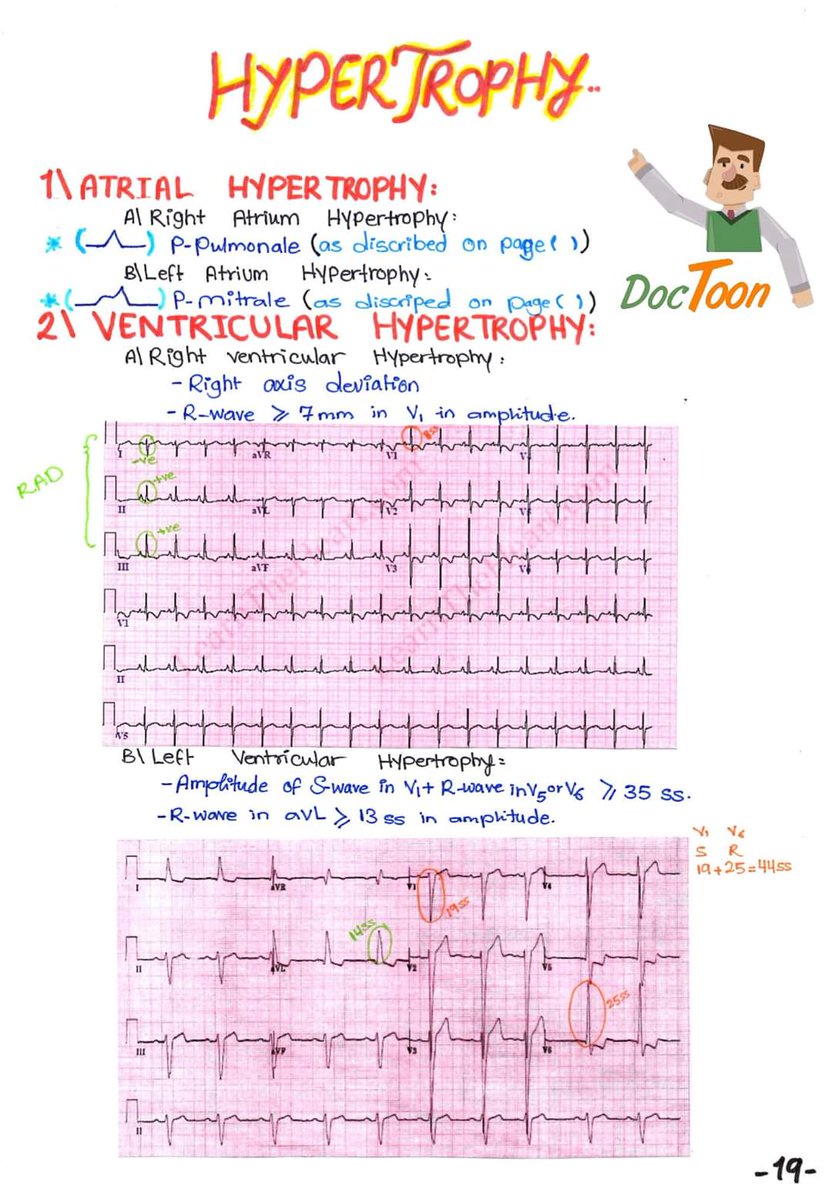 HYPERTROPHY..
1\ ATRIAL HYPERTROPHY:
A\ Right Atrium Hypertrophy:
* ( ) P-Pulmonale (as discribed on page( ))
B\ Left Atrium Hypertrophy:
* ( ) P-mitrale (as discriped on page( ))
DocToon
2\ VENTRICULAR HYPERTROPHY:
A\ Right ventricular Hypertrophy:
- Right axis deviation
- R-wave ≥ 7mm in V1 in amplitude.
RAD
I -ve aVR V1 V4
II +ve aVL V2 V5
III +ve aVF V3 V6
V1
II
V5
B\ Left Ventricular Hypertrophy:
- Amplitude of S-wave in V1 + R-wave in V5 or V6 ≥ 35 ss.
- R-wave in aVL ≥ 13 ss in amplitude.
V1 V6
S R
19+25=44ss
I aVR V1 19ss V4
II aVL 14ss V2 V5
III aVF V3 V6 25ss
II
-19-